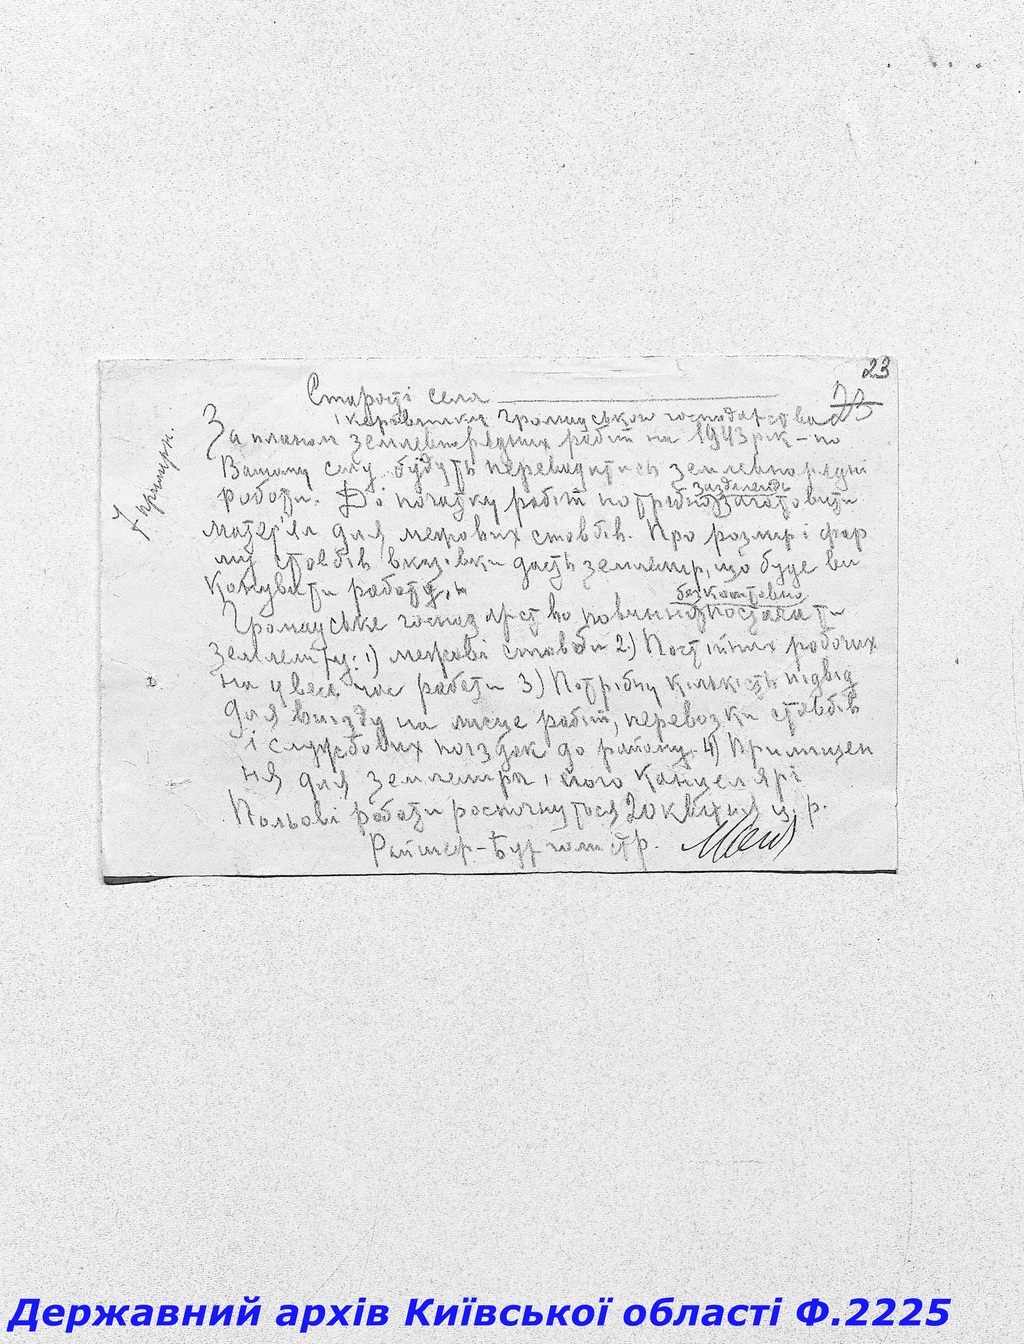 23
Старості села
23
і керовнику Громадського господарства
За планом землевпорядних робіт на 1943 рік – по
Вашому селу будуть переводитись землевпорядні
роботи. До початку робіт потрібно заздалегідь заготовити
матер'ял для межових стовбів. Про розмір і фор
му стовбів вказівки дасть землемір, що буде ви
конувати роботу.
Громадське господарство повинно безкоштовно постачати
землеміру: 1) межові стовби 2) Постійних робочих
на увесь час работи 3) Потрібну кількість підвід
для виїзду на місце робіт, перевозки стовбів
і службових поїздок до району. 4) Приміщен
ня для землеміра і його канцелярії
Польові роботи роспочнуться 20 квітня ц. р.
Райшеф-Бургомістр.
7 примірн.
Державний архів Київської області Ф.2225